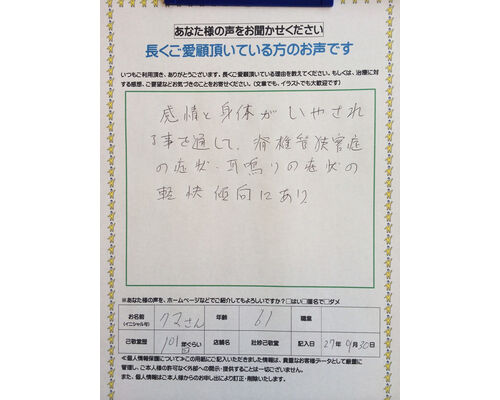 あなた様の声をお聞かせください
長くご愛顧頂いている方のお声です
いつもご利用頂き、ありがとうございます。長くご愛顧頂いている理由を教えてください。もしくは、治療に対
する感想、ご要望などお気づきのことをお寄せください。(文章でも、イラストでも大歓迎です)
感情と身体がいやされ
る事を通して、脊椎管狭窄症
の症状・耳鳴りの症状の
軽快傾向にあり
※あなた様の声を、ホームページなどでご紹介してもよろしいですか?□はい□匿名で□ダメ
お名前 クマさん 年齢 61 職業
(イニシャル可)
己敬堂歴 101回 ぐらい 店舗名 辻妙己敬堂 記入日 27年9月30日
≪個人情報保護について≫この用紙にご記入いただきました情報は、貴重なお客様データとして厳重に
管理し、ご本人様の許可なく外部への開示・提供することは一切ございません。
また、個人情報はご本人様からのお申し出により訂正・削除いたします。